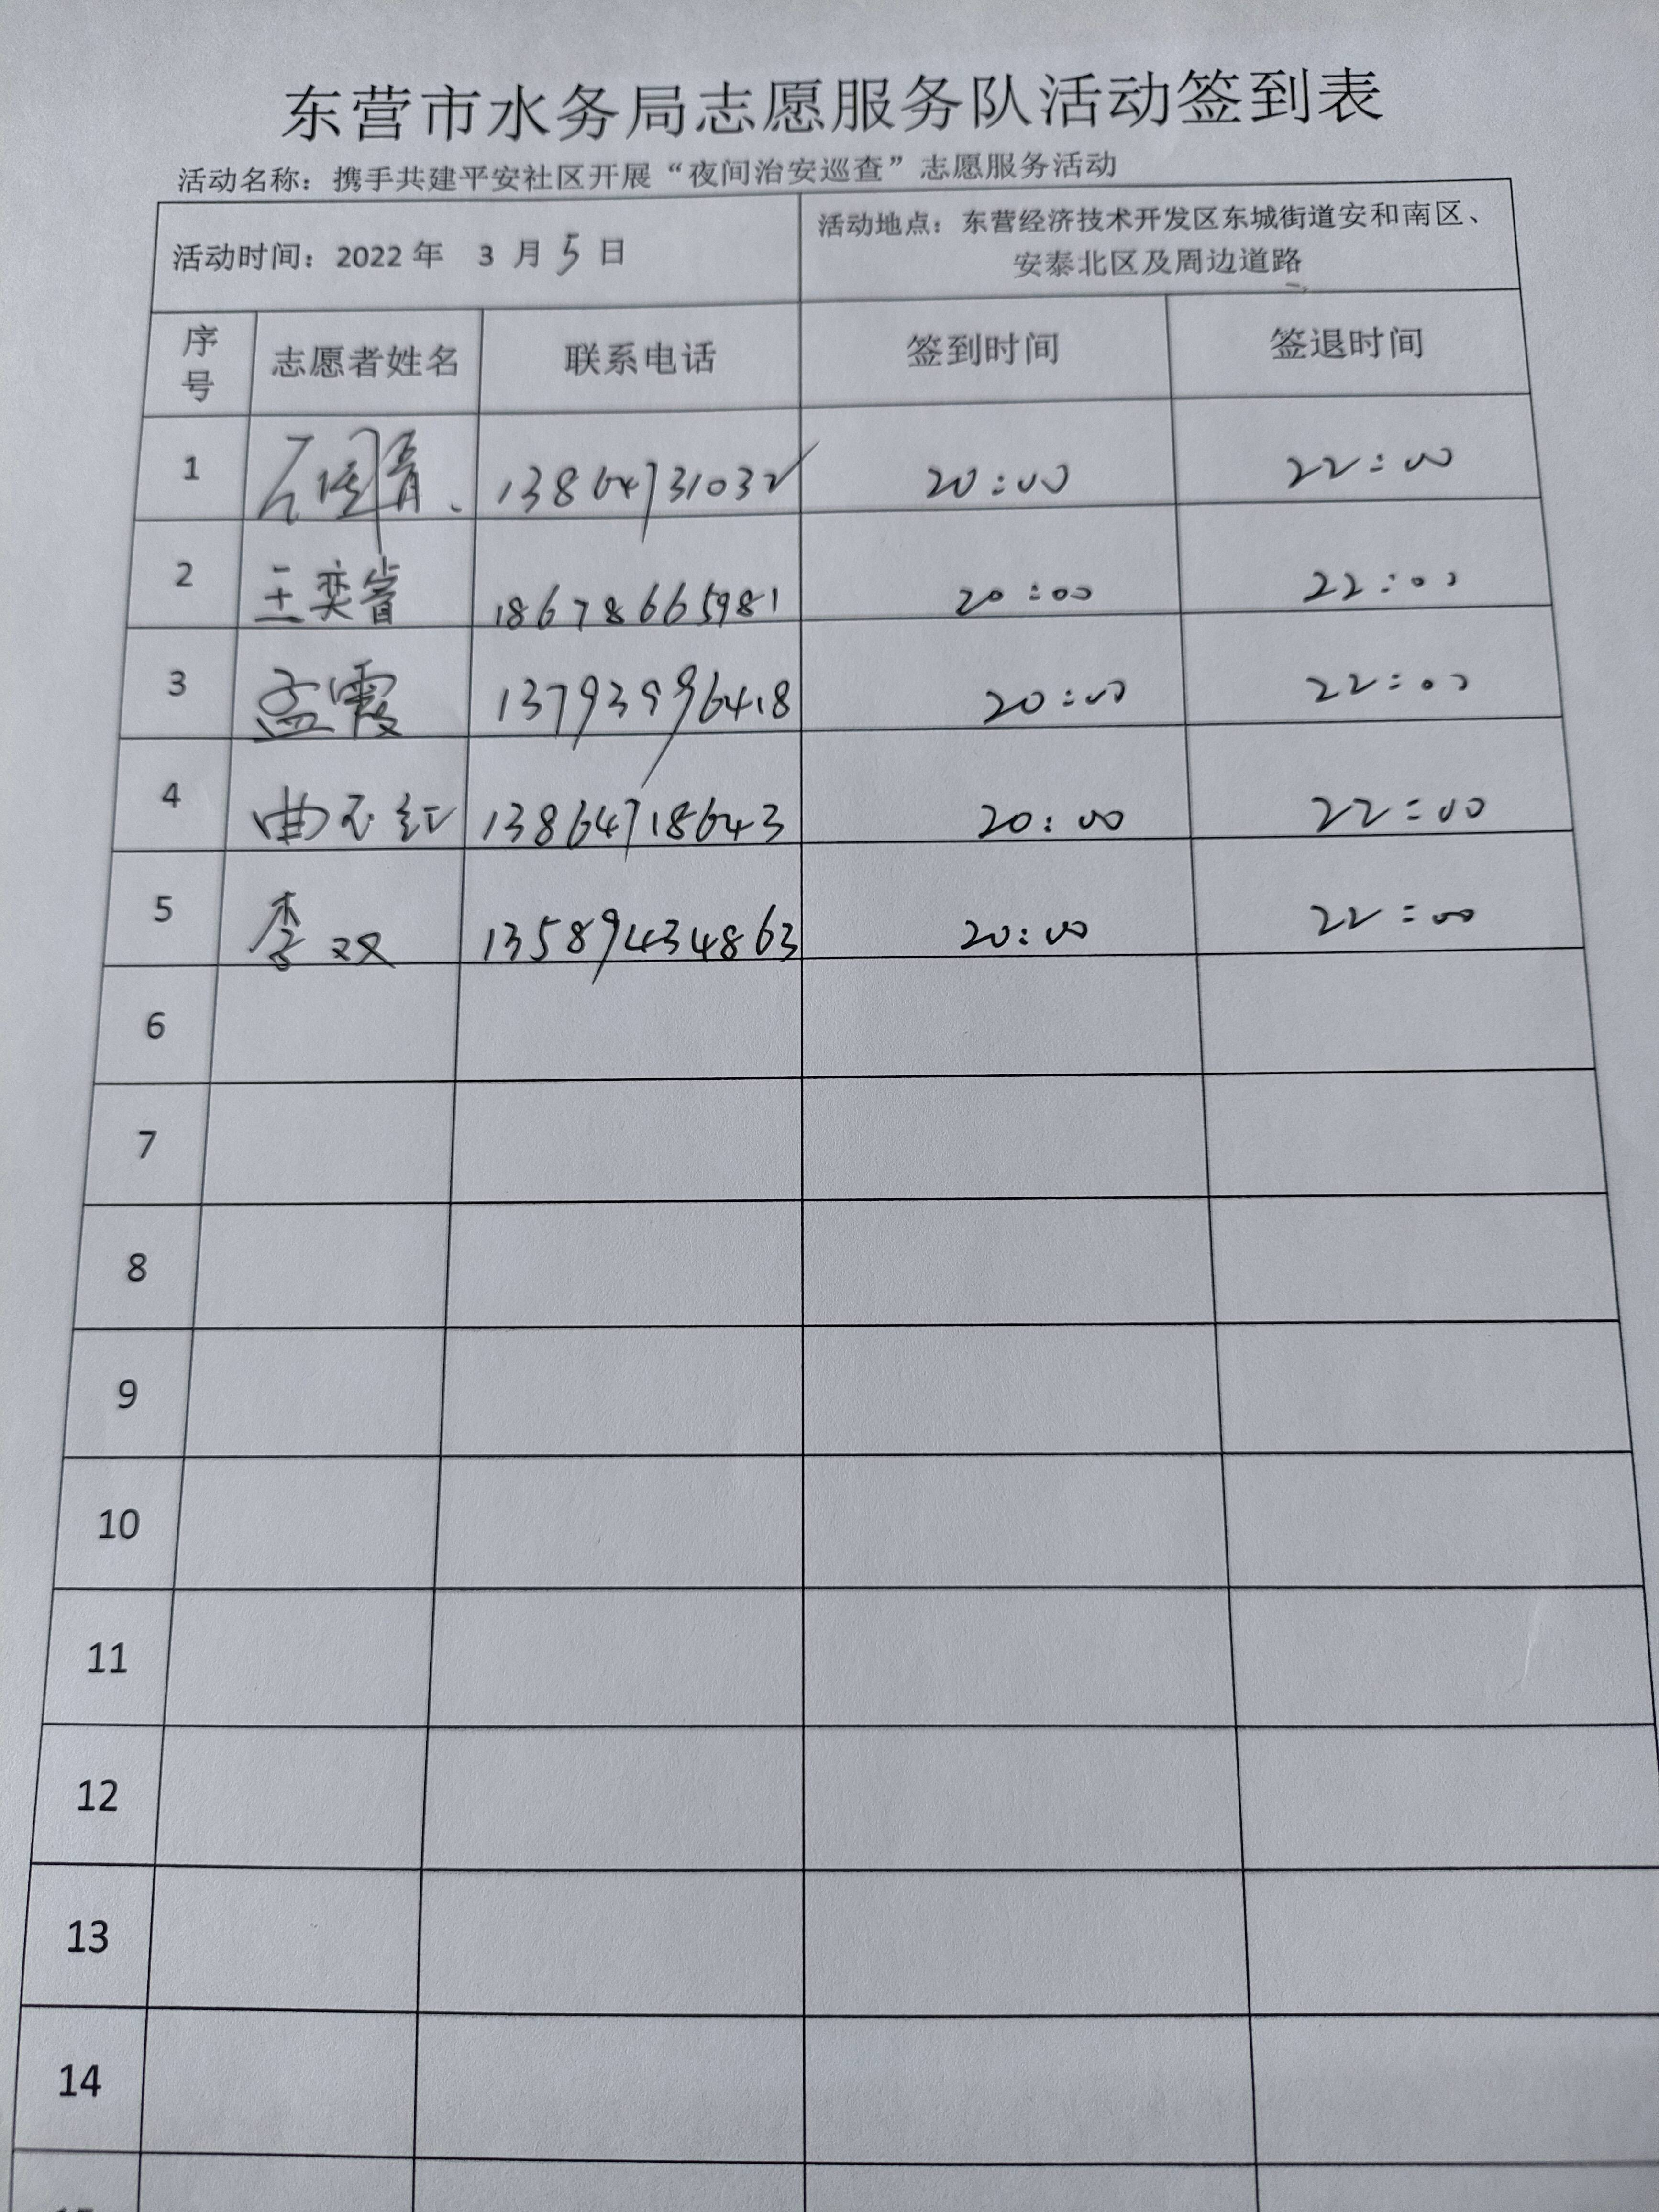 东营市水务局志愿服务队活动签到表
活动名称：携手共建平安社区开展“夜间治安巡查”志愿服务活动
活动时间：2022 年 3 月 5 日 活动地点：东营经济技术开发区东城街道安和南区、
安泰北区及周边道路
序号 志愿者姓名 联系电话 签到时间 签退时间
1 13864731032 20:00 22:00
2 王奕睿 18678665981 20:00 22:00
3 孟霞 13793996418 20:00 22:00
4 曲玉红 13864718643 20:00 22:00
5 李双 13589434863 20:00 22:00
6
7
8
9
10
11
12
13
14